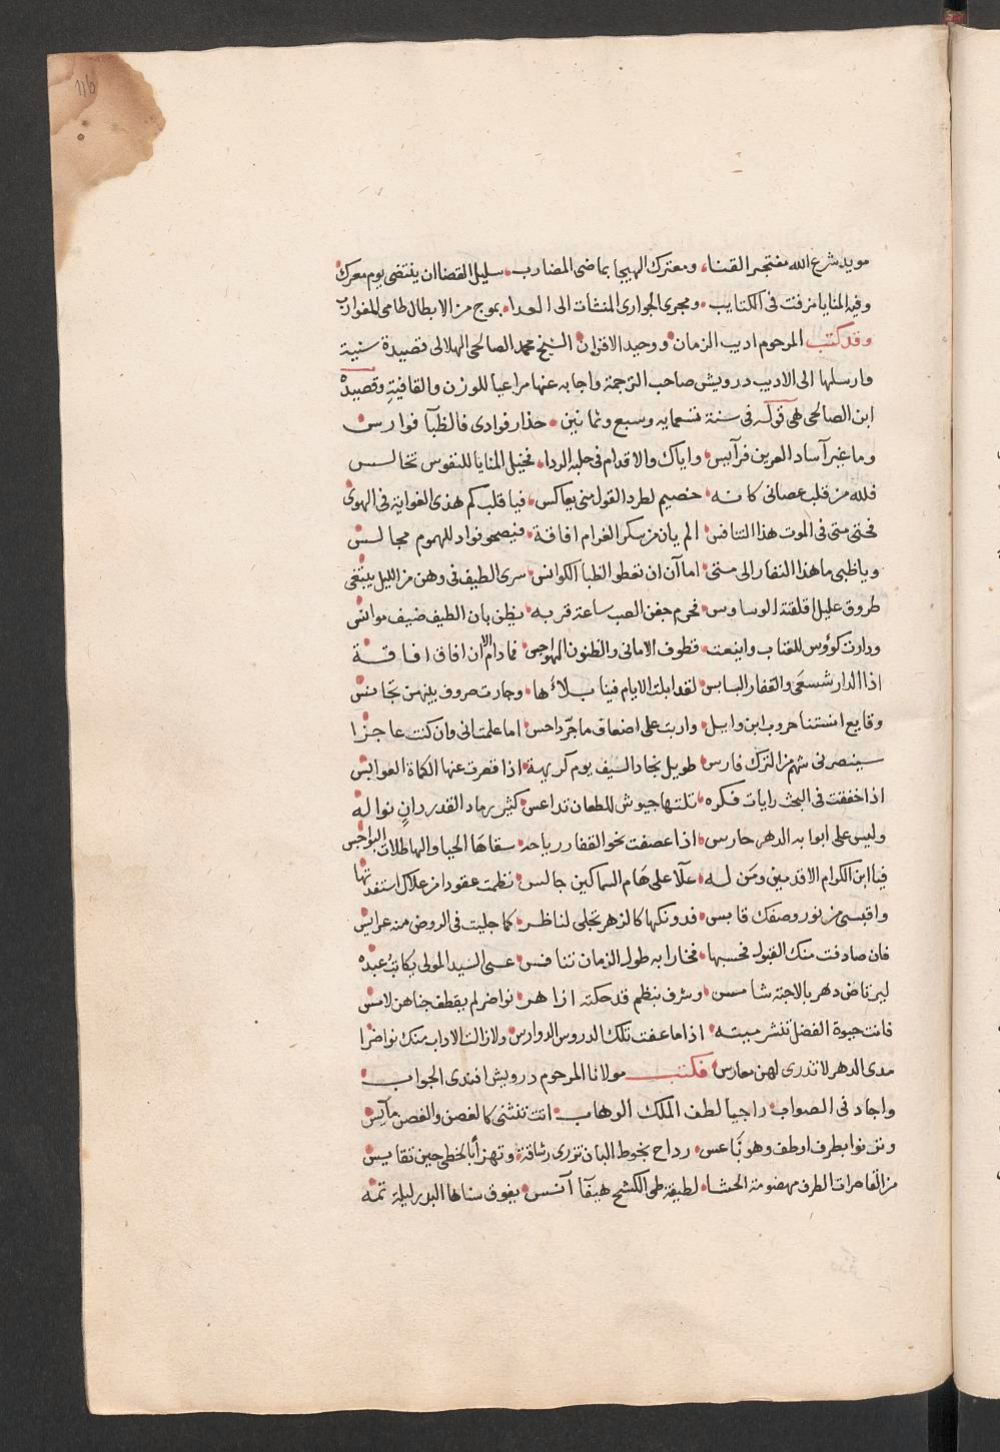 116
مويد شرع الله مفتجر القنا، ومعترك الهيجا بماضى المضارب. سليل القضا ان ينتضى يوم معرك
وفيه المنايا مزفت فى الكتايب. ومجرى الجوارى المنشات الى العدا. بموج من الابطال طامى المغوارب
وقد كتب المرحوم اديب الزمان. ووحيد الاقران. الشيخ محمد الصالحى الهلالى قصيدة سنية
وارسلها الى الاديب درويش صاحب الترجمة واجابه عنها مراعيا للوزن والقافية وقصيدة
ابن الصالحى هى قوله فى سنة تسعمايه وسبع وثمانين. حذار فوادى فالظبآ فوارس
وما غير آساد العرين فرآيس. واياك والاقدام فى حلبه الردا. فخيل المنايا للنفوس تخالس
فلله من قلب عصانى كانه. خصيم لطرد القول منى يعاكس. فيا قلب كم هذى الغواية فى الهوى
فحتى متى فى الموت هذا التنافس. الم يان من سكر الغرام افاقة. فيصحو فواد للهموم مجالس
وياظبى ما هذا النفار الى متى. اما آن ان تعطو الظبا الكوانس. سرى الطيف فى وهن من الليل يبتغى
طروق عليل اقلقته الوساوس. فحرم جفن الصب ساعة قربه. يظن بان الطيف ضيف موانس
ودارت كوؤس للعتاب واينعت. قطوف الامانى والظنون الهواجس. فما دام الا ان افاق افاقة
اذا الدار شسعى والقفار البسابس. لقد ابلت الايام فينا بلاءها. وجارت صروف بينهن تجانس
وقايع انستنا حروب ابن وايل. واربت على اضعاف ما جرّ داحس. اما علمتانى وان كنت عاجزا
سينصرنى شهم من الترك فارس. طويل نجاد السيف يوم كريهة. اذا قصرت عنها الكماة العوابس
اذا خفقت فى البحث رايات فكره. تلتها جيوش للطعان تداعس. كثير رماد القدر دانٍ نواله
وليس على ابوابه الدهر حارس. اذا عصفت نحو القفار رياحه. سقاها الحيا والهاطلات البواجس
فيا ابن الكرام الاقدمين ومن له. علّا على هام السماكين جالس. نظمت عقودا من علاك استفدتها
واقبسنى من نور وصفك قابس. فدونكها كالزهر تجلى لناظر. كما جليت فى الروض منه عرايس
فان صادفت منك القبول فحسبها. فخارا به طول الزمان تنافس. عسى السيد المولى يكاتب عبده
ليرتاض دهر بالاجتة شامس. وشرف بنظم قد حكته ازاهر. نواضر لم يقطف جناهن لامس
فانت حيوة الفضل تنشر ميته. اذا ما عفت تلك الدروس الدوارس. ولا زالت الاداب منك نواضرا
مدى الدهر لا تذرى لهن مغارس. فكتب مولانا المرحوم درويش افندى الجواب.
واجاد فى الصواب. راجيا لطف الملك الوهاب. اتت تنثنى كالغصن والغصن مآيس
وترنوا بطرف اوطف وهو ناعس. رداح بخوط البان تزرى رشاقة. وتهزأ بالخطى حين تقايس
من القاصرات الطرف مهضومة الحشا. لطيفة طى الكشح هيفآ آنس. يفوق سناها البدر ليلة تمه